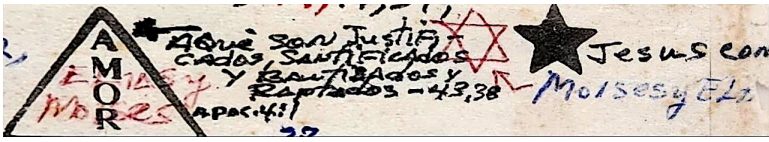 AMOR
Aquè son Justifi-
cados, Santificados
y Bautizados y
Raptados - 43,38
Apoc. 4:1
Moises
Jesus con
Moises y Eli